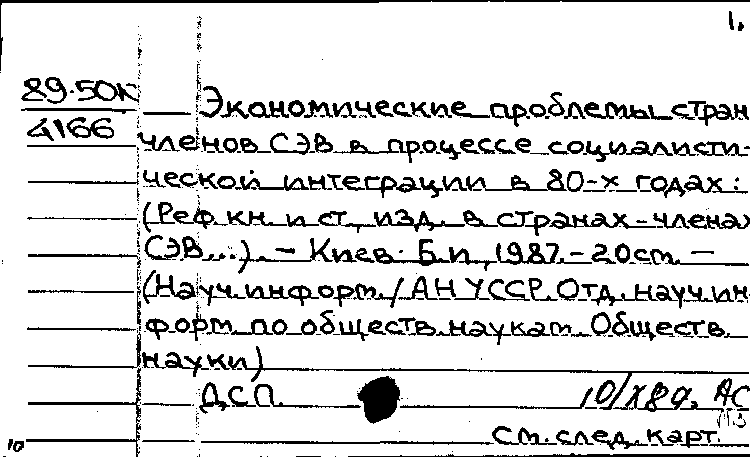 1.
89-50К
4166
Экономические проблемы стран-
членов СЭВ в процессе социалисти-
ческой интеграции в 80-х годах:
(Реф. кн. и ст., изд. в странах-членах
СЭВ...). - Киев: Б.и., 1987. - 20 ст. -
(Науч. информ. / АН УССР. Отд. науч. ин-
форм. по обществ. наукам. Обществ.
науки)
ДСП.
10/X 89. АС
см. след. карт.
10